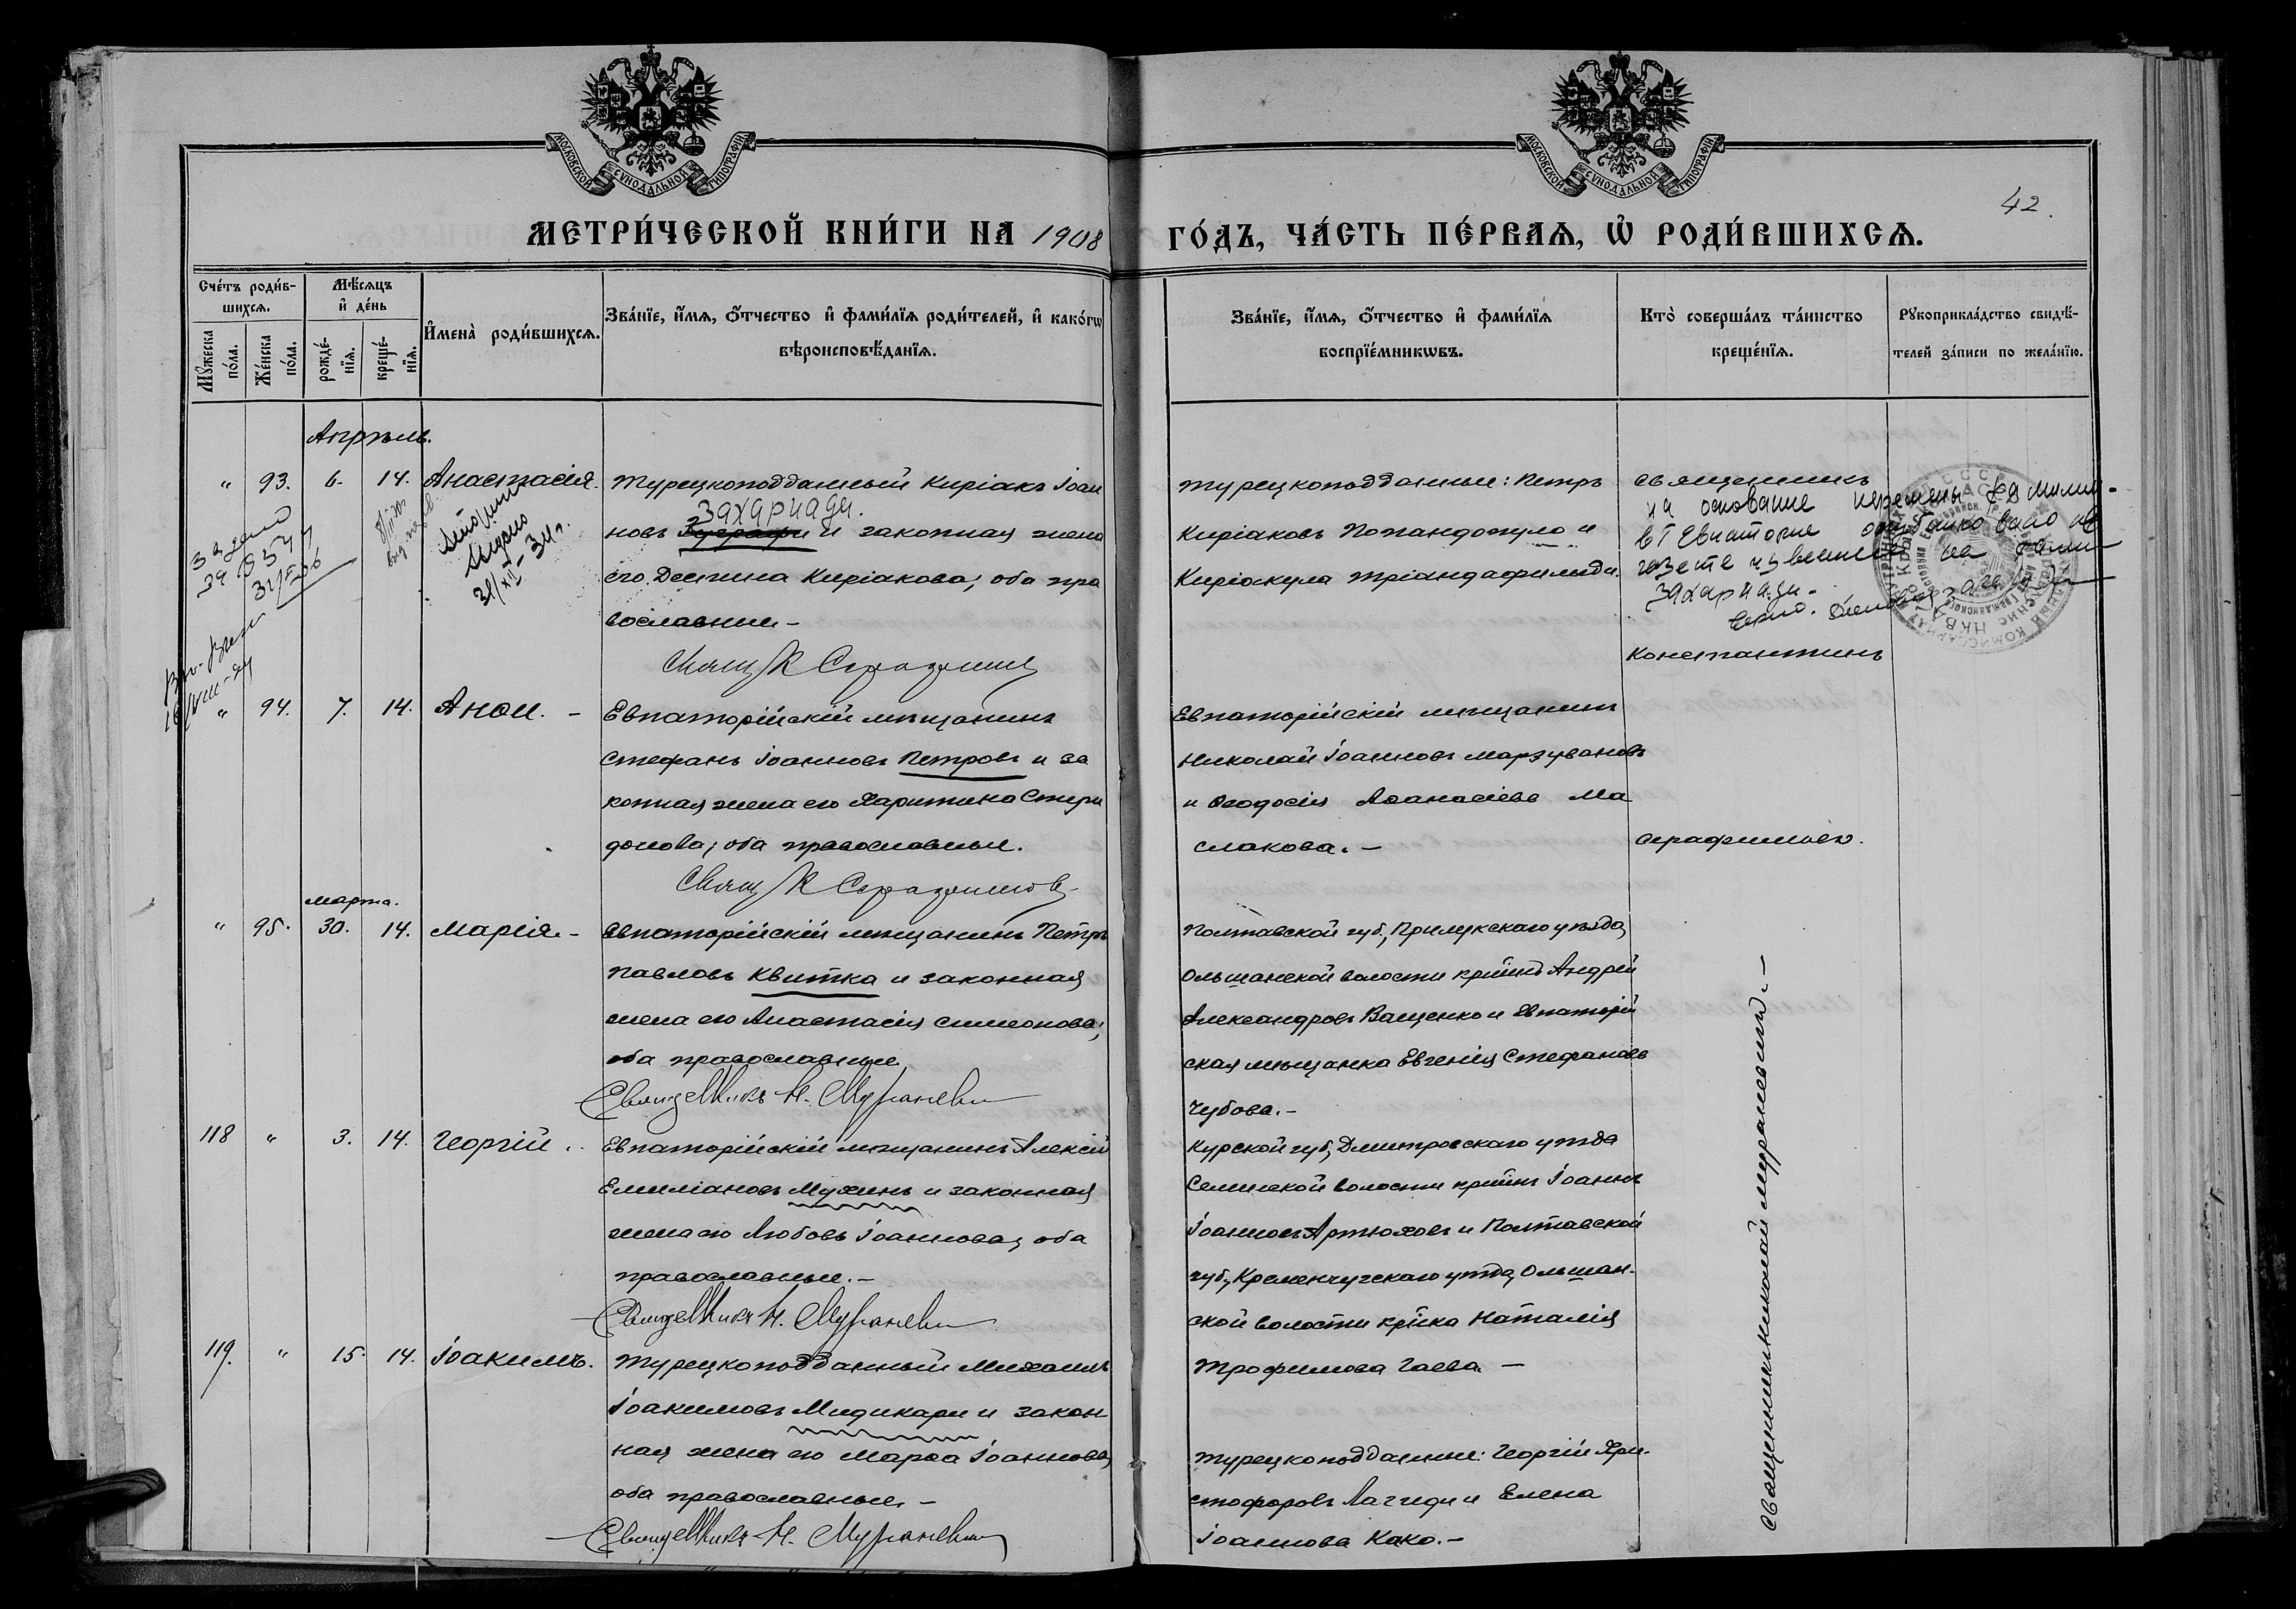 МОСКОВСКОЙ СѴНОДАЛЬНОЙ ТИПОГРАФІИ
МОСКОВСКОЙ СѴНОДАЛЬНОЙ ТИПОГРАФІИ
42.
МЕТРИ́ЧЕСКОЙ КНИ́ГИ НА 1908 ГО́ДЪ, ЧА́СТЬ ПЕ́РВАѦ, Ѡ РОДИ́ВШИХСѦ.
Сче́тъ роди́в-
шихсѧ.
Мꙋжеска по́ла.
Же́нска по́ла.
Мѣ́сѧцъ
и҆ де́нь
рожде́-
нїѧ.
креще́-
нїѧ.
И҆мена̀ роди́вшихсѧ.
Зва́нїе, и҆́мѧ, ѻ҆́тчество и҆ фами́лїѧ роди́телей, и҆ како́гѡ
вѣроисповѣ́данїѧ.
Зва́нїе, и҆́мѧ, ѻ҆́тчество и҆ фами́лїѧ
воспрїе́мникѡвъ.
Кто̀ соверша́лъ та́инство
креще́нїѧ.
Рꙋкоприкла́дство свидѣ́-
телей за́писи по жела́нїю.
Апрѣль.
" 93. 6. 14. Анастасія. Турецкоподданный Киріакъ Іоан
Захариади.
новъ и законная жена
его Деспина Киріакова; оба пра
вославные –
Свящ К Серафимов
Турецкоподданные: Петръ
Киріаковъ Попандопуло и
Киріакула Тріандафилиди.
Священникъ
на основание перемены фамилии
в г Евпатория
газете извещение на фами-
Захариади-
Константинъ
31/XII-34г.
" 94. 7. 14. Анна. – Евпаторійскій мѣщанинъ
Стефанъ Іоанновъ Петровъ и за
конная жена его Харитина Спири
донова; оба православные.
Свящ К Серафимов
Евпаторійскій мѣщанинъ
Николай Іоанновъ Марзувановъ
и Ѳеодосія Аѳанасіева Ма
слакова. –
Серафимовъ.
марта.
" 95. 30. 14. Марія – Евпаторійскій мѣщанинъ Петръ
Павловъ Квитка и законная
жена его Анастасія Симеонова;
оба православные
Священникъ Н. Мураневичъ
Полтавской губ., Прилукскаго уѣзда,
Ольшанской волости кр-нинъ Андрей
Александровъ Ващенко и Евпаторій
ская мѣщанка Евгенія Стефанова
Чубова. –
118 " 3. 14. Георгій. Евпаторійскій мѣщанинъ Алексій
Емиліановъ Мухинъ и законная
жена его Любовь Іоаннова, оба
православные. –
Священникъ Н. Мураневичъ
Курской губ., Дмитровскаго уѣзда
волости кр-нинъ Іоаннъ
Іоанновъ Артюховъ и Полтавской
губ., Кременчугскаго уѣзда, Ольшан-
ской волости кр-ка Наталія
Трофимова Гаева. –
119. " 15. 14. Іоакимъ. Турецкоподданный Михаилъ
Іоакимовъ Мидикари и закон
ная жена его Марѳа Іоаннова,
оба православные. –
Священникъ Н. Мураневичъ
Турецкоподданные: Георгій Хри-
стофоровъ Лагиди и Елена
Іоаннова Како. –
Священникъ Николай Мураневичъ –